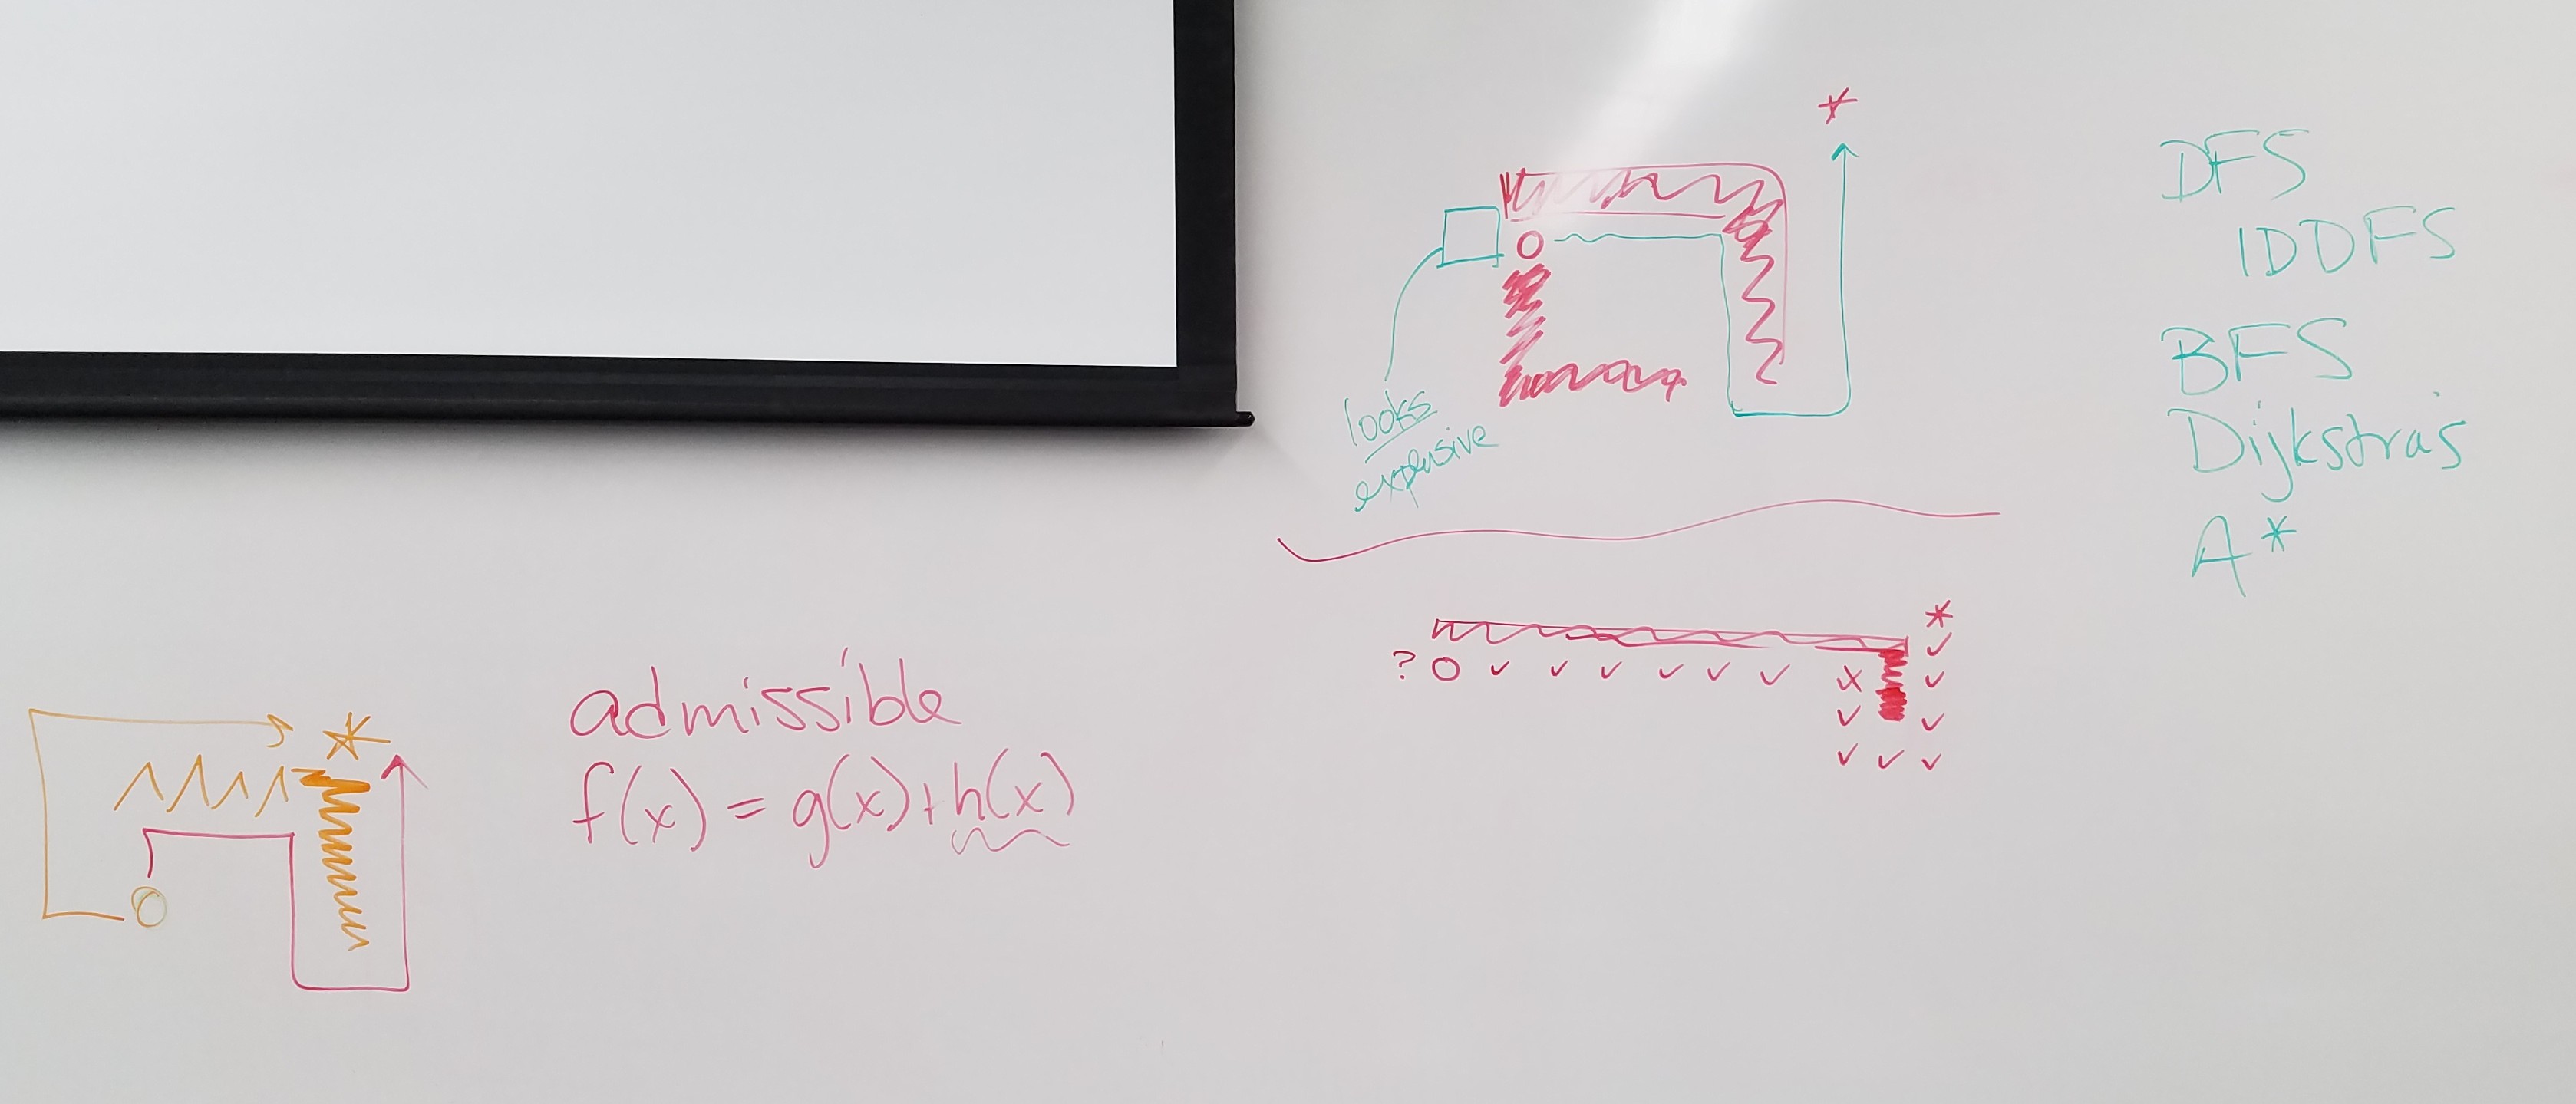 DFS
IDDFS
BFS
Dijkstra's
A*
looks
expensive
?
admissible
f(x) = g(x)+h(x)